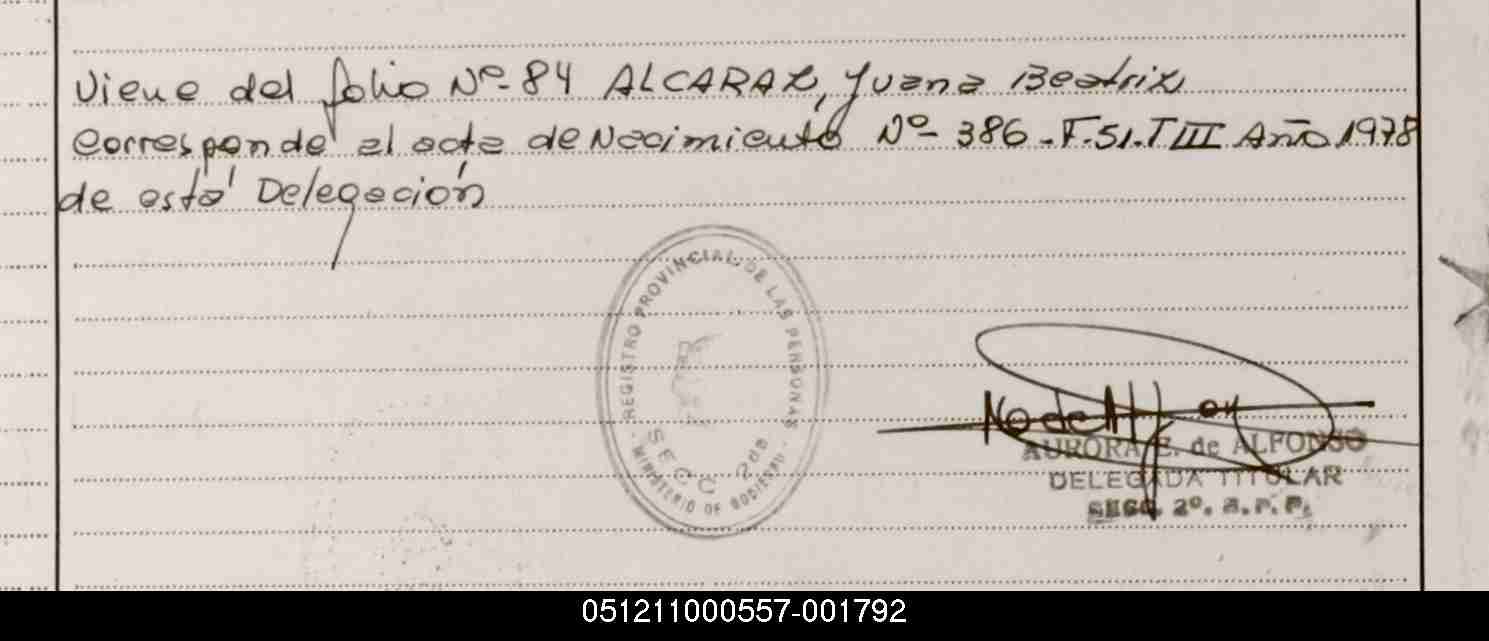 Viene del folio Nº 84 ALCARAZ, Juana Beatriz
Corresponde al acta de Nacimiento Nº 386-F.51.T III Año 1978
de esta Delegación
REGISTRO PROVINCIAL DE LAS PERSONAS
SECC 2da
MINISTERIO DE GOBIERNO
AURORA E. de ALFONSO
DELEGADA TITULAR
SECC. 2º. R.P.P.
051211000557-001792